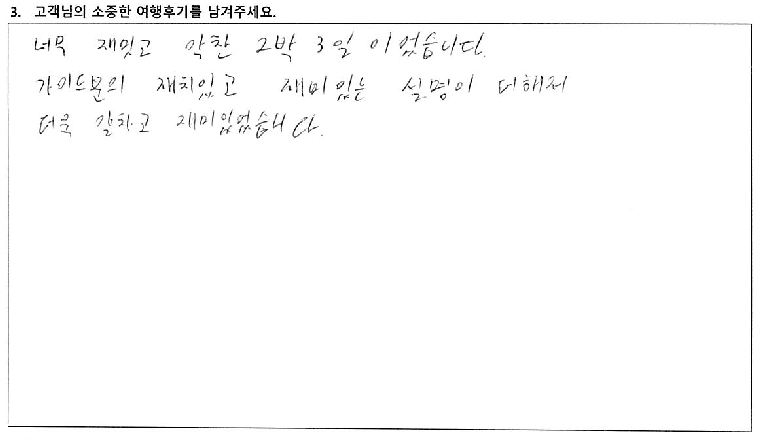 3. 고객님의 소중한 여행후기를 남겨주세요.
너무 재밌고 알찬 2박 3일 이었습니다.
가이드분의 재치있고 재미있는 설명이 더해져
더욱 알차고 재미있었습니다.